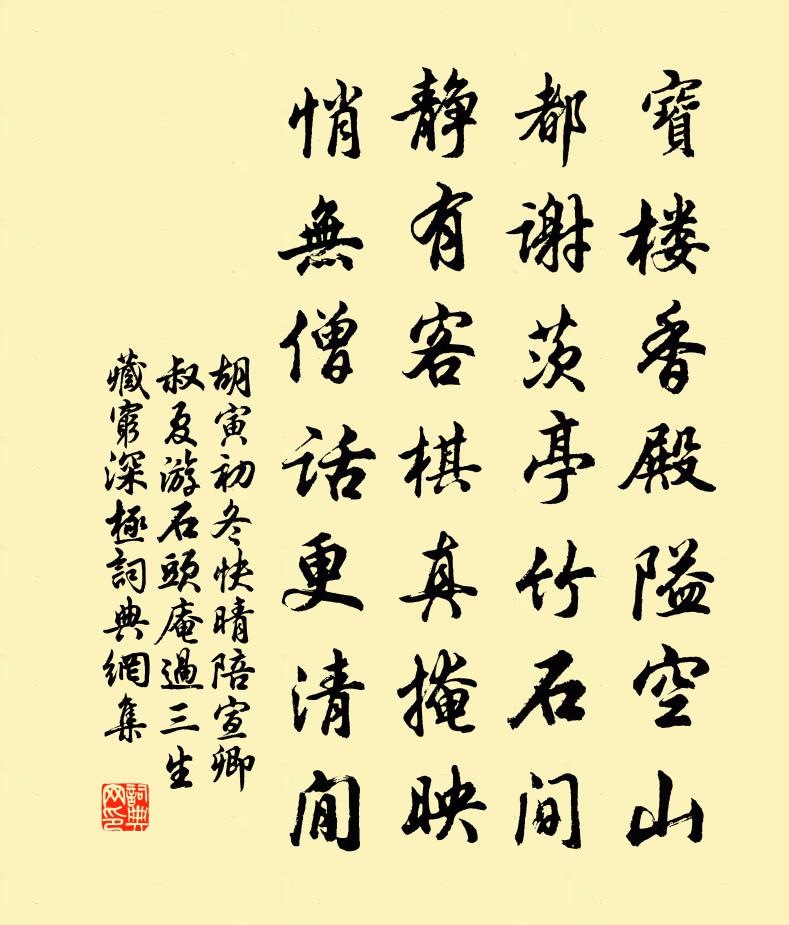 寶楼香殿隘空山
都謝茨亭竹石间
静有客棋真掩映
悄無僧話更清閒
胡寅初冬快晴陪宣卿
叔夏游石頭庵過三生
藏窮深極詞典網集
詞典网印